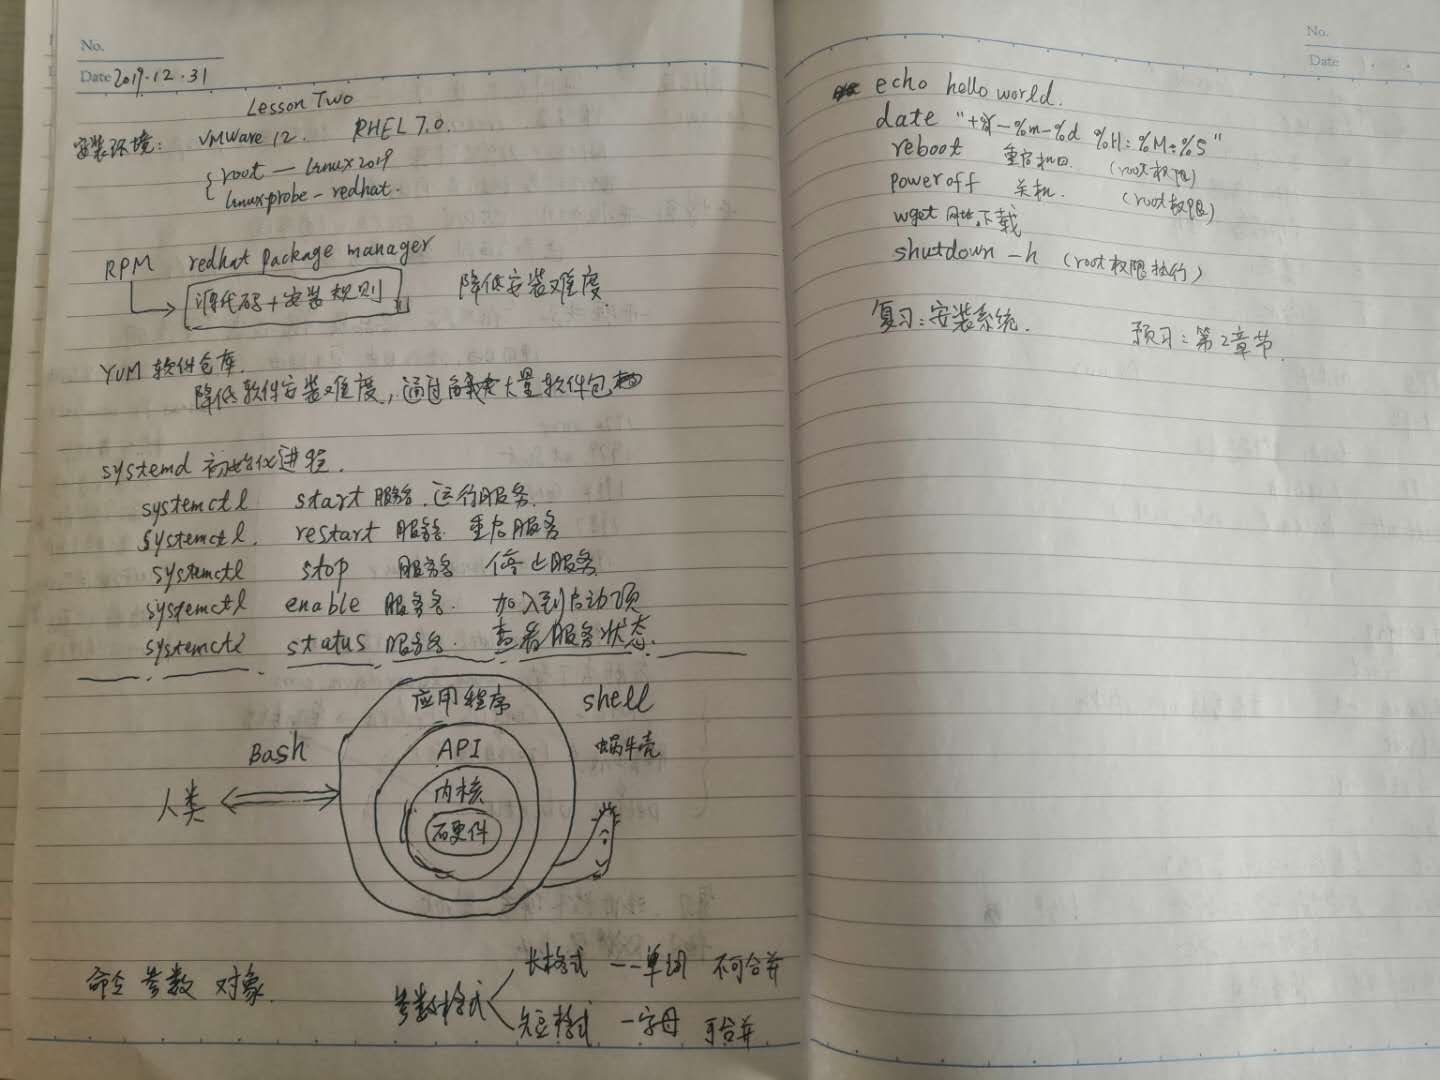 No.
Date 2019.12.31
Lesson Two
安装环境: VMware 12. RHEL 7.0.
root — linux2019
linuxprobe - redhat.
RPM redhat package manager
源代码 + 安装规则 降低安装难度
YUM 软件仓库.
降低软件安装难度, 通过 大量软件包
systemd 初始化进程.
systemctl start 服务名. 运行服务.
systemctl. restart 服务名 重启服务
systemctl stop 服务名 停止服务
systemctl enable 服务名. 加入到启动项
systemctl status 服务名. 查看服务状态.
应用程序 shell
Bash API 蜗牛壳
人类 内核
硬件
命令 参数 对象.
参数格式
长格式 --单词 不可合并
短格式 -字母 可合并
No.
Date
echo hello world.
date "+%Y-%m-%d %H:%M:%S"
reboot 重启机口. (root权限)
poweroff 关机. (root权限)
wget 网址 下载
shutdown -h (root权限执行)
复习: 安装系统. 预习: 第2章节.